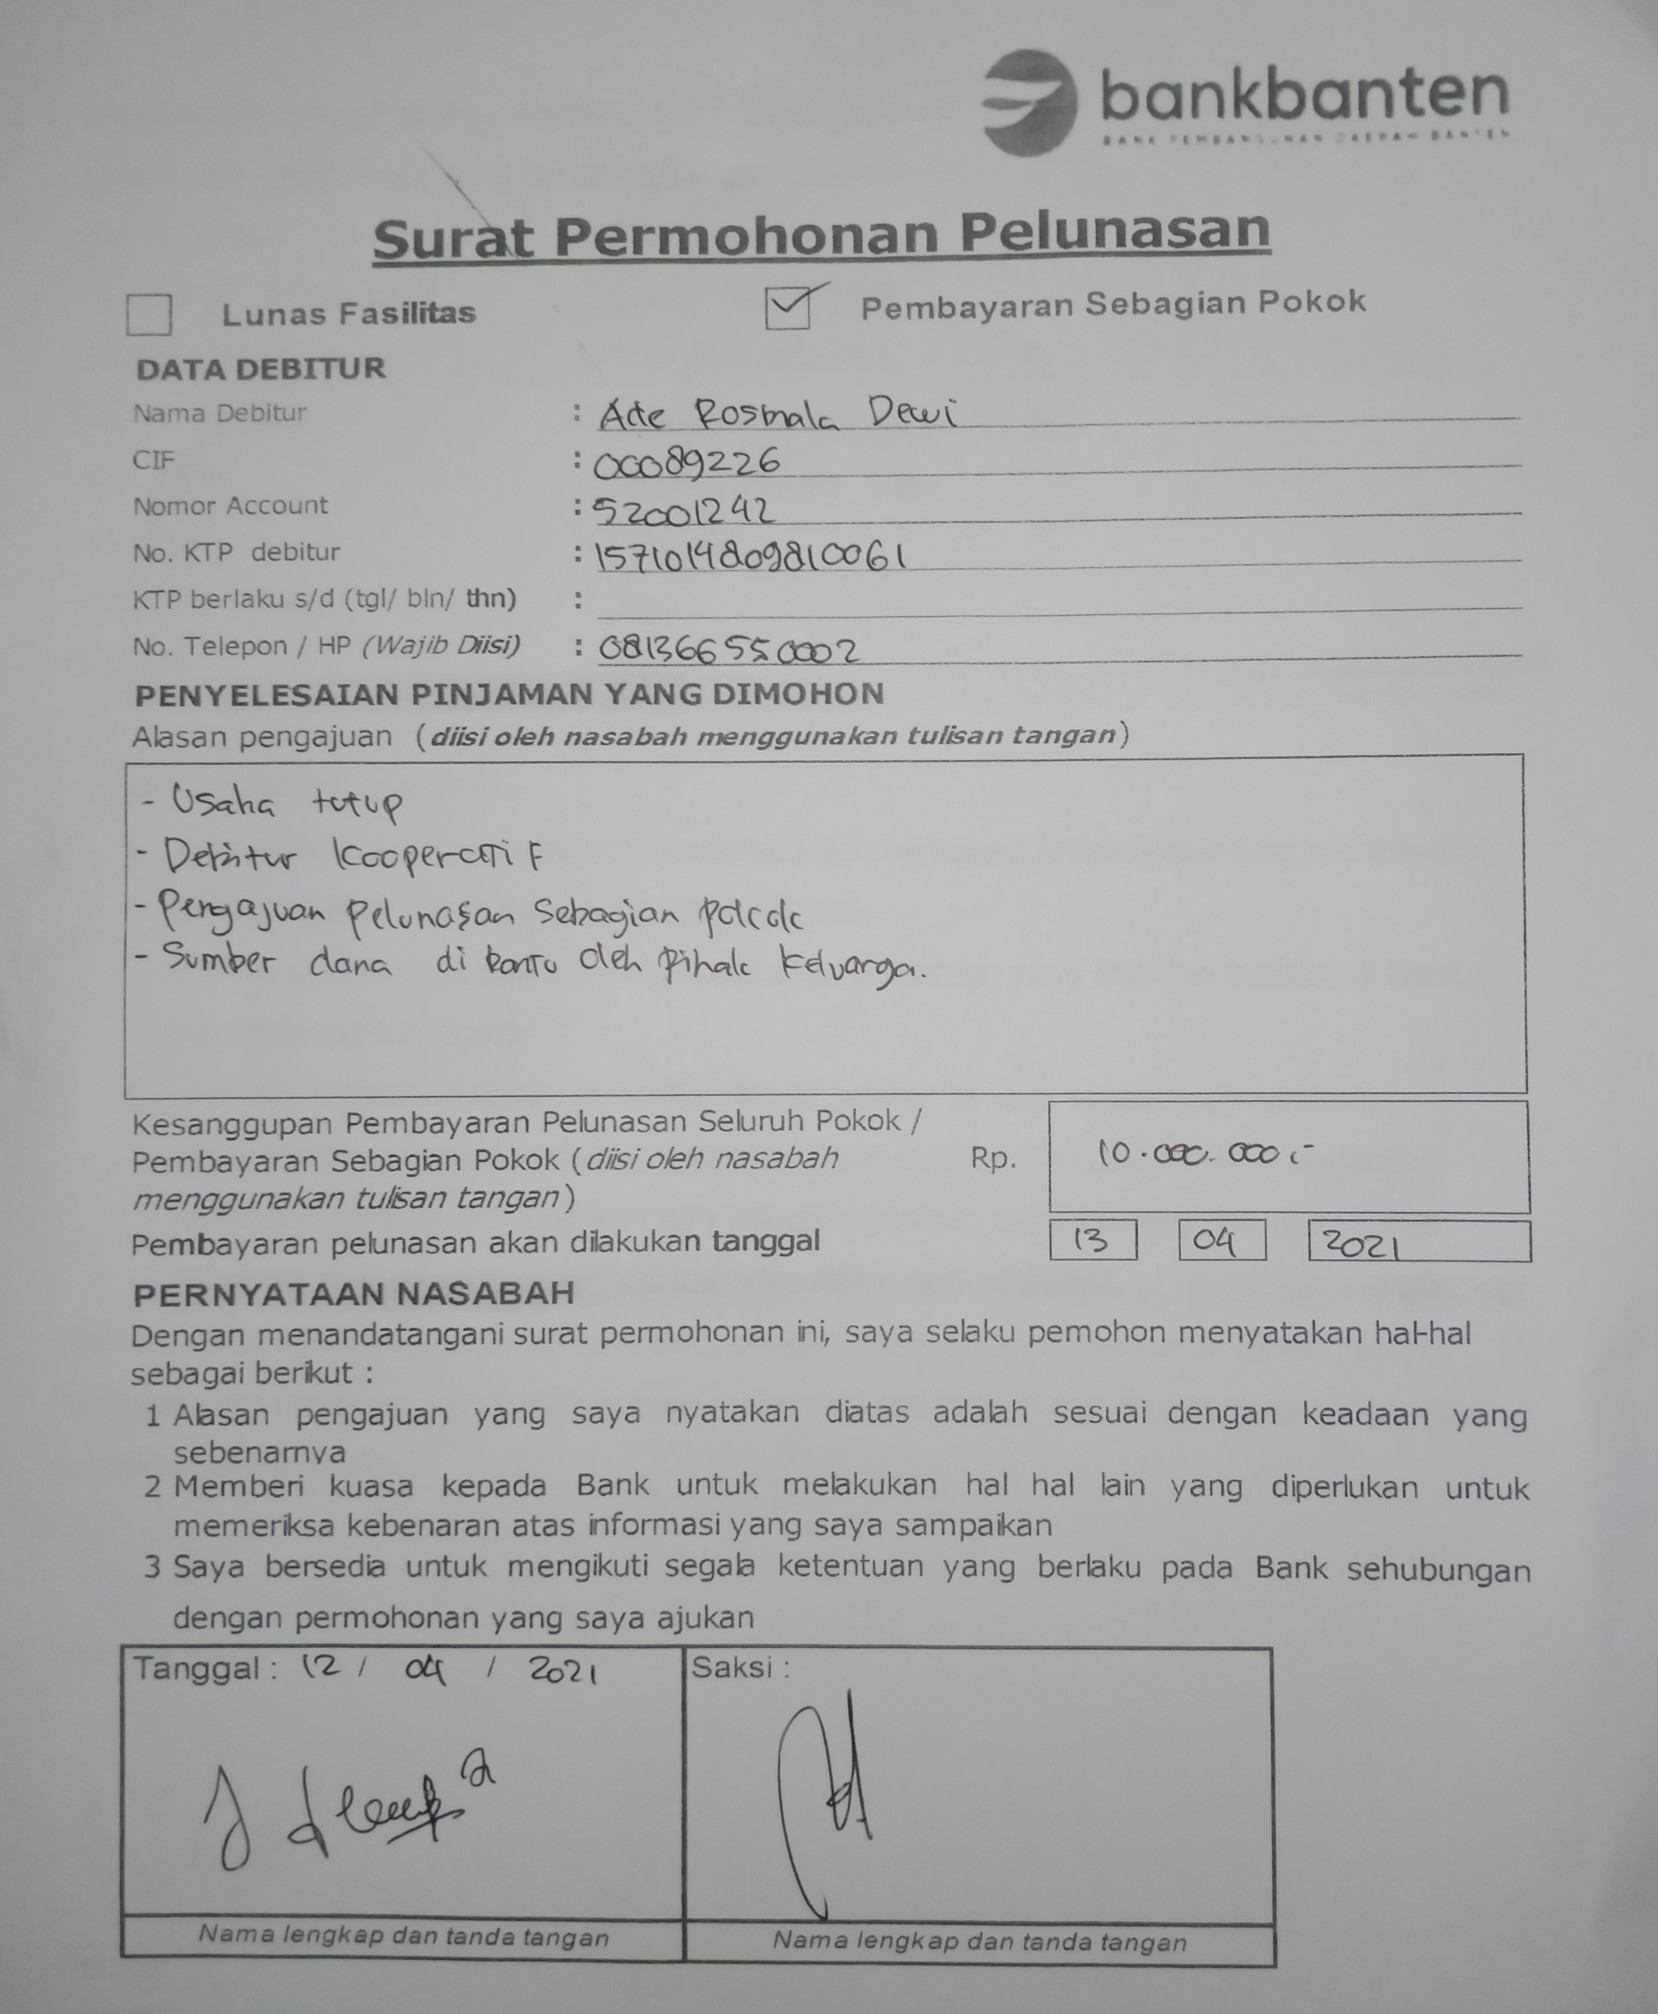 bankbanten
BANK PEMBANGUNAN DAERAH BANTEN
Surat Permohonan Pelunasan
Lunas Fasilitas
Pembayaran Sebagian Pokok
DATA DEBITUR
Nama Debitur : Ade Rosmala Dewi
CIF : 00089226
Nomor Account : 52001242
No. KTP debitur : 1571014809810061
KTP berlaku s/d (tgl/ bln/ thn) :
No. Telepon / HP (Wajib Diisi) : 081366550002
PENYELESAIAN PINJAMAN YANG DIMOHON
Alasan pengajuan (diisi oleh nasabah menggunakan tulisan tangan)
- Usaha tutup
- Debitur Kooperatif
- Pengajuan Pelunasan Sebagian pokok
- Sumber dana di bantu oleh pihak keluarga.
Kesanggupan Pembayaran Pelunasan Seluruh Pokok /
Pembayaran Sebagian Pokok (diisi oleh nasabah Rp. 10.000.000,-
menggunakan tulisan tangan)
Pembayaran pelunasan akan dilakukan tanggal 13 04 2021
PERNYATAAN NASABAH
Dengan menandatangani surat permohonan ini, saya selaku pemohon menyatakan hal-hal
sebagai berikut :
1 Alasan pengajuan yang saya nyatakan diatas adalah sesuai dengan keadaan yang
sebenarnya
2 Memberi kuasa kepada Bank untuk melakukan hal hal lain yang diperlukan untuk
memeriksa kebenaran atas informasi yang saya sampaikan
3 Saya bersedia untuk mengikuti segala ketentuan yang berlaku pada Bank sehubungan
dengan permohonan yang saya ajukan
Tanggal : 12 / 04 / 2021
Saksi :
Nama lengkap dan tanda tangan
Nama lengkap dan tanda tangan